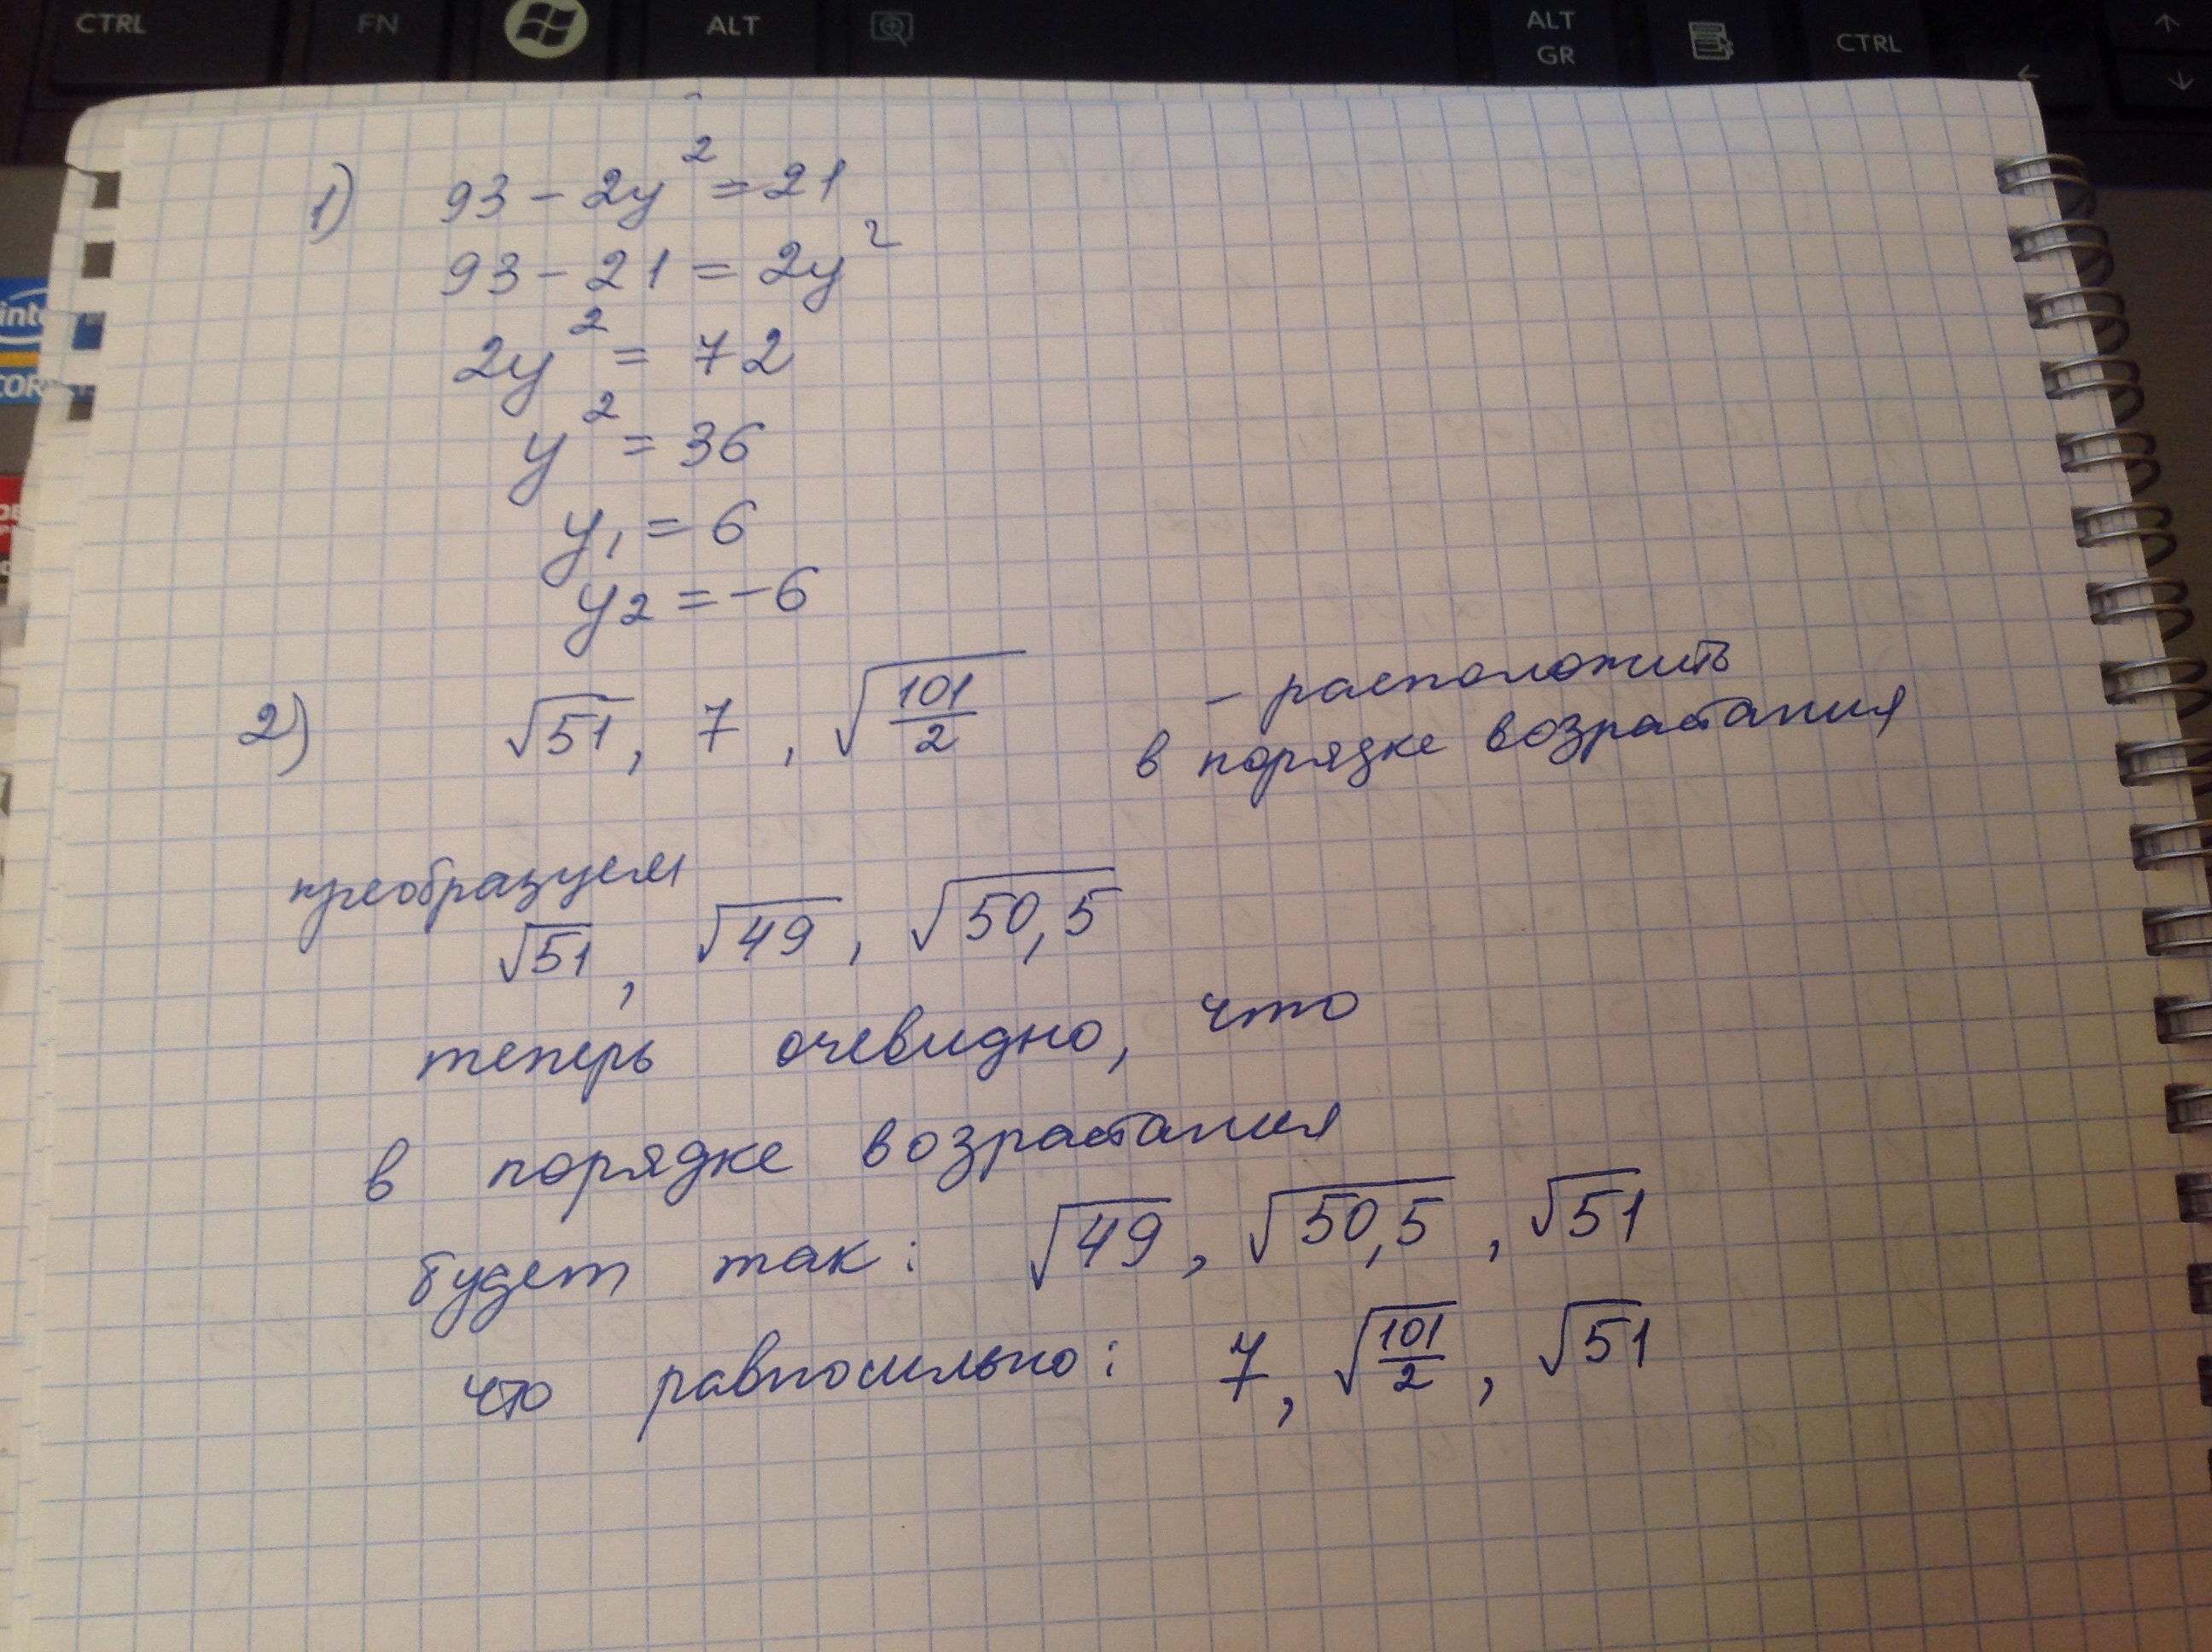 CTRL FN ALT ALT GR CTRL
1) 93 - 2y² = 21
93 - 21 = 2y²
2y² = 72
y² = 36
y₁ = 6
y₂ = -6
2) √51, 7, √(101/2) - расположить
в порядке возрастания
преобразуем
√51, √49, √50,5
теперь очевидно, что
в порядке возрастания
будет так: √49, √50,5, √51
что равносильно: 7, √(101/2), √51